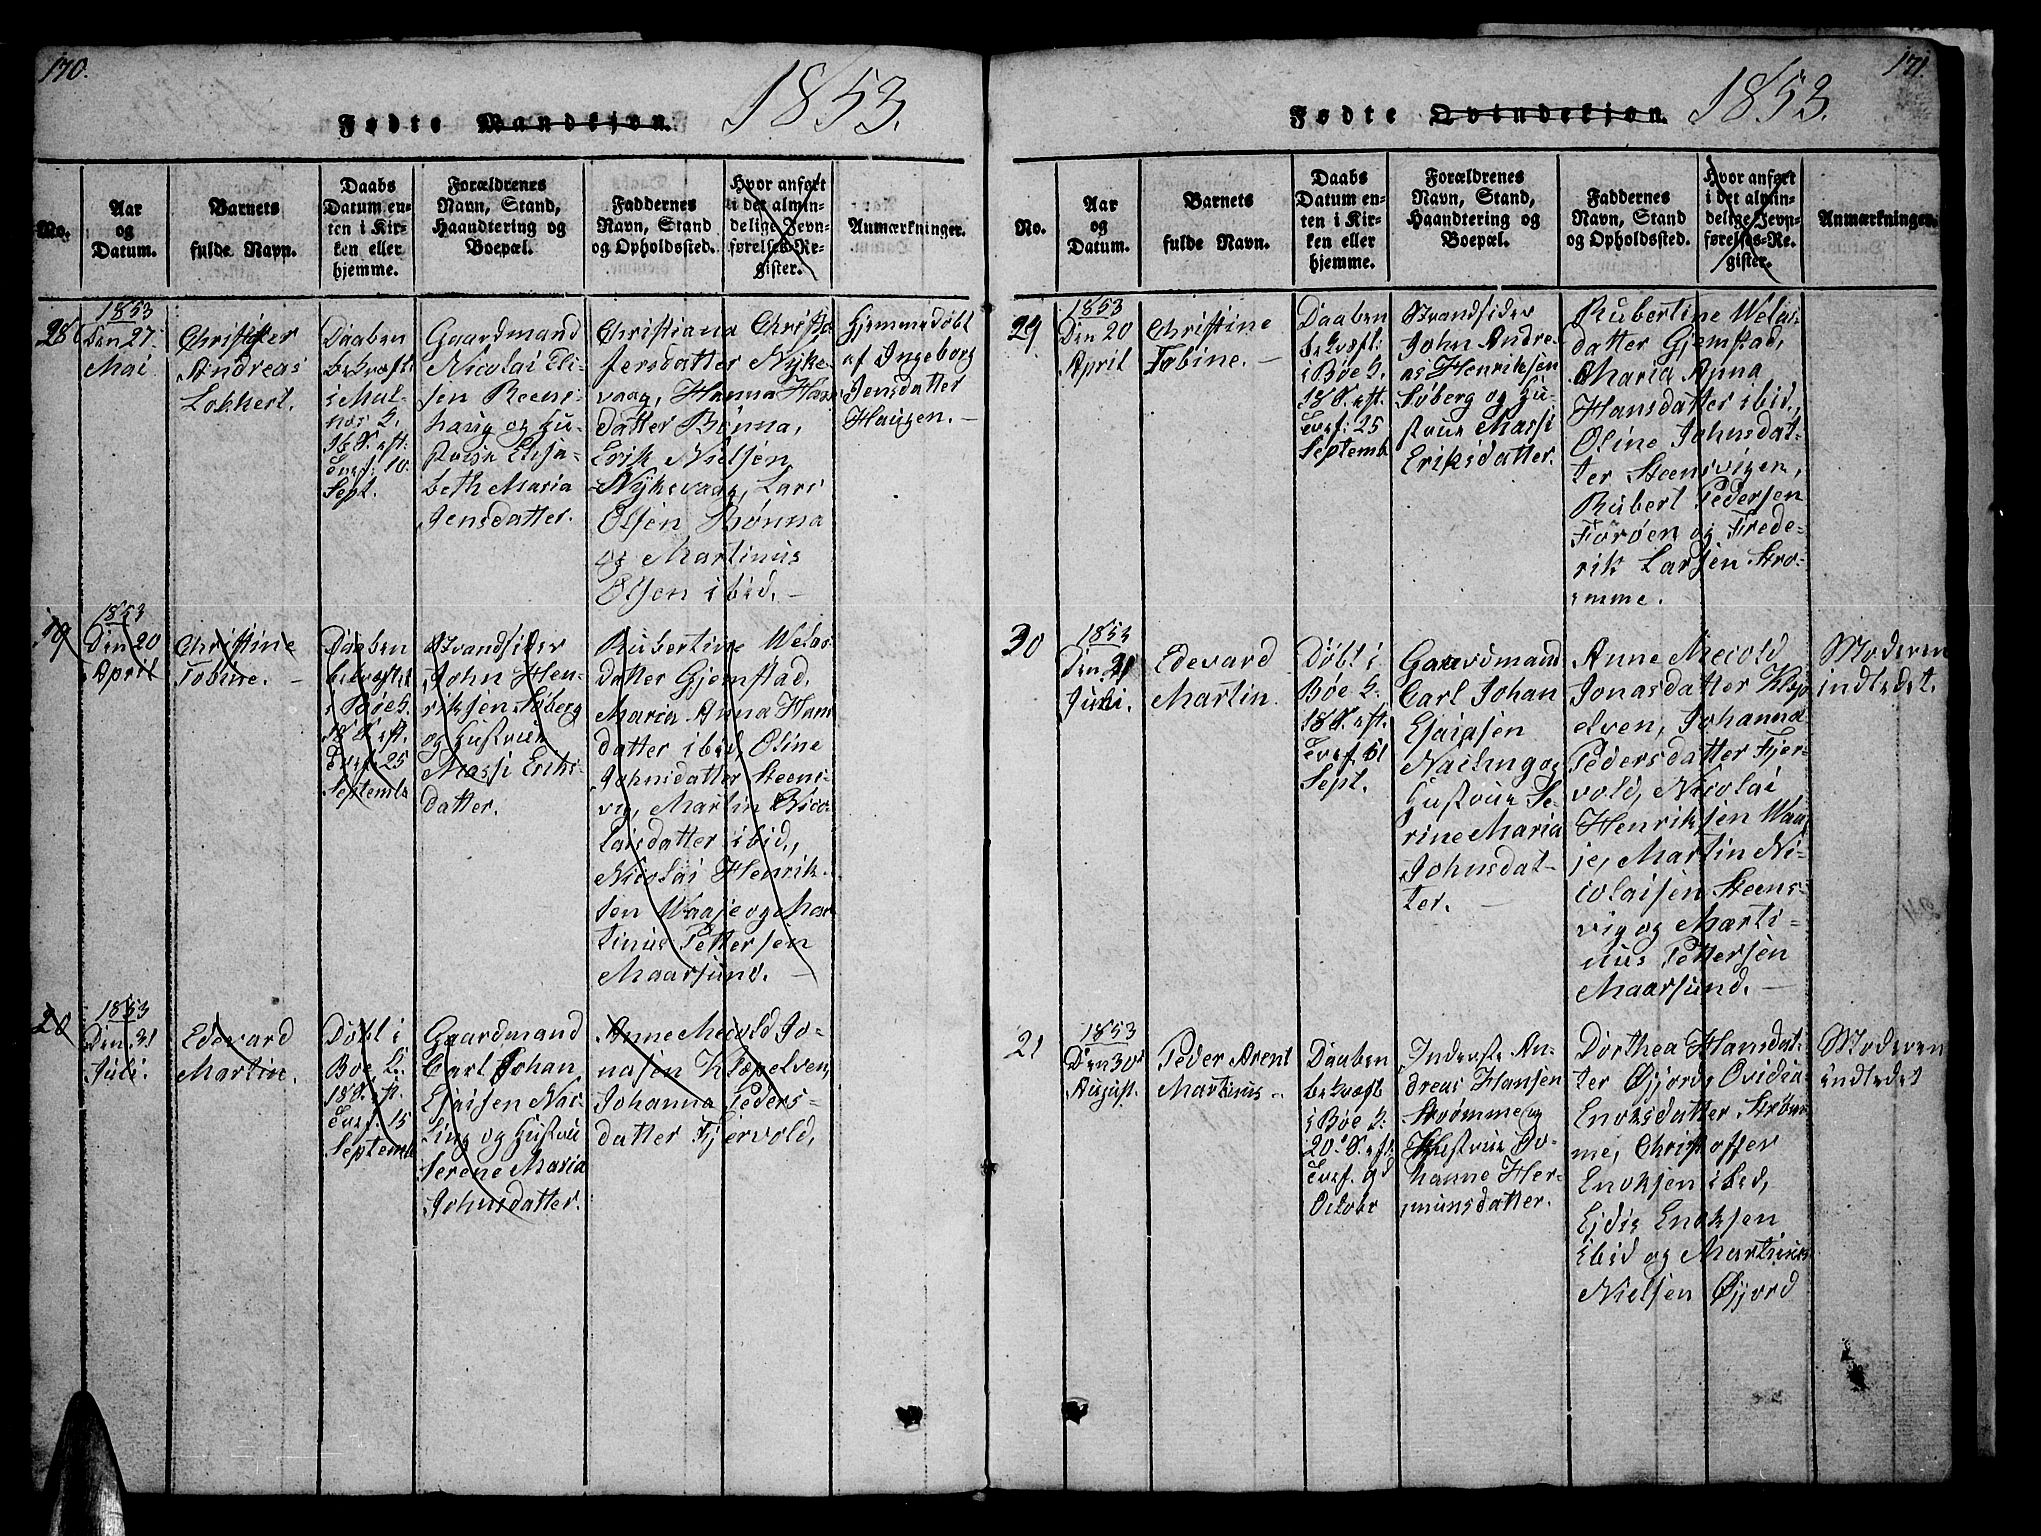 170.
Fødte Mandkjøn. 1853.
No.
Aar
og
Datum.
Barnets
fulde Navn.
Daabs
Datum en-
ten i Kir-
ken eller
hjemme.
Forældrenes
Navn, Stand,
Haandtering og
Boepæl.
Faddernes
Navn, Stand
og Opholdssted.
Hvor anført
i det almin-
delige Jevn-
førelses-Re-
gister.
Anmærkninger.
28
1853
Den 27
Mai
Christister
Andreas
Lokkert.
Daaben
bekræft:
i Mal-
nes K.
16 S. eft:
Tref: 10.
Sept.
Gaardmand
Nicolai Eli-
sen Reens-
haug og Hu-
strue Elisa-
beth Maria
Jensdatter.
Christiana Christo-
fersdatter Nykse-
vaag, Hanna Hans-
datter Rønna,
Erik Nielsen
Nyksvaag, Lars
Olsen Rønna
og Martinus
Olsen ibid. –
Hjemmedøbt
af Ingeborg
Jensdatter
Haugen. –
19
1853
Den 20
April
Christine
Tobine. –
Daaben
bekræftet
i Bøe K.
18 S. eft.
Tref: 25
Septembr
Strandsider
John Hen-
riksen Søberg
og Hustrue
Massi Eriks-
datter.
Rubertine Welas-
datter Gjemstad,
Maria Anna Hans-
datter ibid, Oline
Johnsdatter Steens-
vig, Martin Nico-
laisdatter ibid.,
Nicolai Henrik-
sen Waaje og Mar-
tinus Pettersen
Maarsund. –
20
1853
Den 21
Juli.
Edevard
Martin.
Døbt i
Bøe K.
18 S. eft.
Tref. 15
Septemb
Gaardmand
Carl Johan
Esaisen Nas-
ling og Hustrue
Serene Maria
Johnsdatter.
Anne Mecold Jo-
nasen Klæpelven,
Johanna Peders-
datter Fjervold,
171.
Fødte Qvindekjøn. 1853.
No.
Aar
og
Datum.
Barnets
fulde Navn.
Daabs
Datum en-
ten i Kir-
ken eller
hjemme.
Forældrenes
Navn, Stand,
Haandtering og
Boepæl.
Faddernes
Navn, Stand
og Opholdssted.
Hvor anført
i det almin-
delige Jevn-
førelses-Re-
gister.
Anmærkninger.
29
1853
Den 20
April
Christine
Tobine. –
Daaben
bekræft:
i Bøe K.
18 S. eft.
Tref: 25
Septemb
Strandsider
John Andre-
as Henriksen
Søberg og Hu-
strue Massi
Eriksdatter.
Rubertine Welas-
datter Gjemstad,
Maria Anna
Hansdatter ibid.,
Oline Johnsdat-
ter Steensvigen,
Rubert Pedersen
Forøen og Frede-
rik Larsen Stro-
mme.
30
1853
Den 21
Juli.
Edevard
Martin.
Døbt i
Bøe K.
18 S. eft.
Tref.
Sept.
Gaardmand
Carl Johan
Esaiasen
Nasling og
Hustrue Se-
rine Maria
Johnsdat-
ter. –
Anne Mecold
Jonasdatter Klæp-
elven, Johanna
Pedersdatter Fjer-
vold, Nicolai
Henriksen Waa-
je, Martin Ni-
colaisen Steens-
vig og Marti-
nus Pettersen
Maarsund. –
Moderen
indledet.
21
1853
Den 30
August.
Peder Arent
Martinus –
Daaben
bekræft
i Bøe K.
20 S. eft.
Tref. 9d
Octobr
Inderste An-
dreas Hansen
Strømme og
Hustrue Jo-
hanne Her-
munsdatter.
Dorthea Hansdat-
ter Øjord, Ovidia
Enoksdatter Strøm-
me, Christoffer
Enoksen ibid,
Ejdis Enoksen
ibid og Martinus
Nielsen Øjord
Moderen
indledet